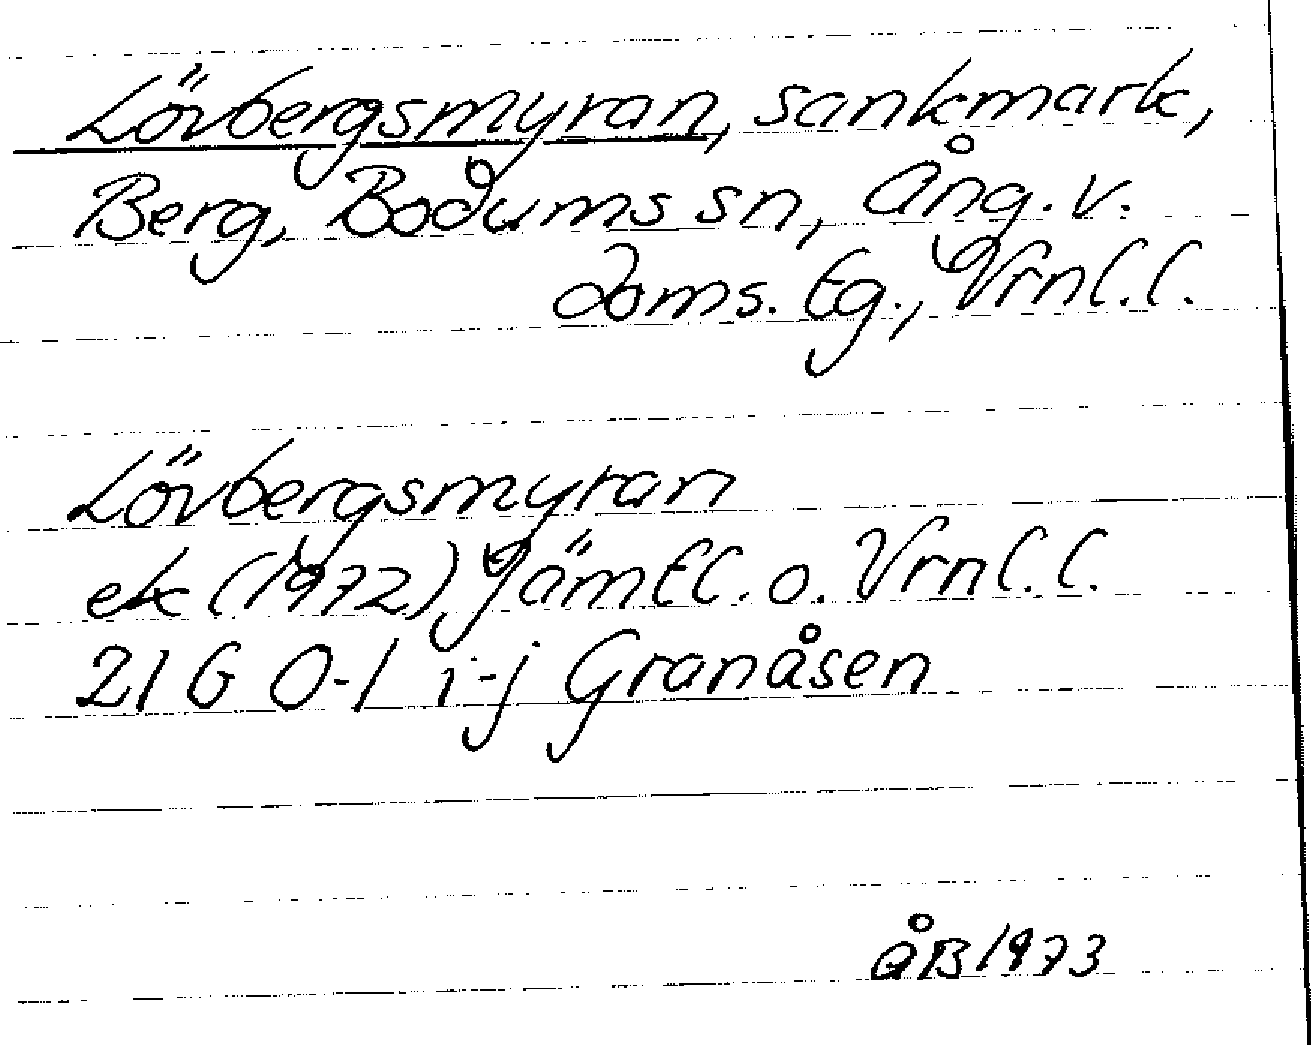 Lövbergsmyran, sankmark,
Berg, Bodums sn, Ång. v.
doms. tg., Vrnl. l.
Lövbergsmyran
ek (1972) Jämtl. o. Vrnl. l.
21 G 0-1 i-j Granåsen
ÅB 1973